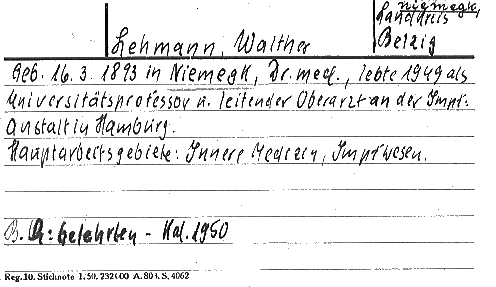 Niemegk,
Landkreis
Lehmann, Walther Belzig
Geb. 16.3.1893 in Niemegk, Dr. med., lebte 1949 als
Universitätsprofessor u. leitender Oberarzt an der Impf-
anstalt in Hamburg.
Hauptarbeitsgebiete: Innere Medizin, Impfwesen.
B. G: Gelehrten - Kal. 1950
Reg. 10. Stichnote 1. 50. 232000 A. 803. S. 4062